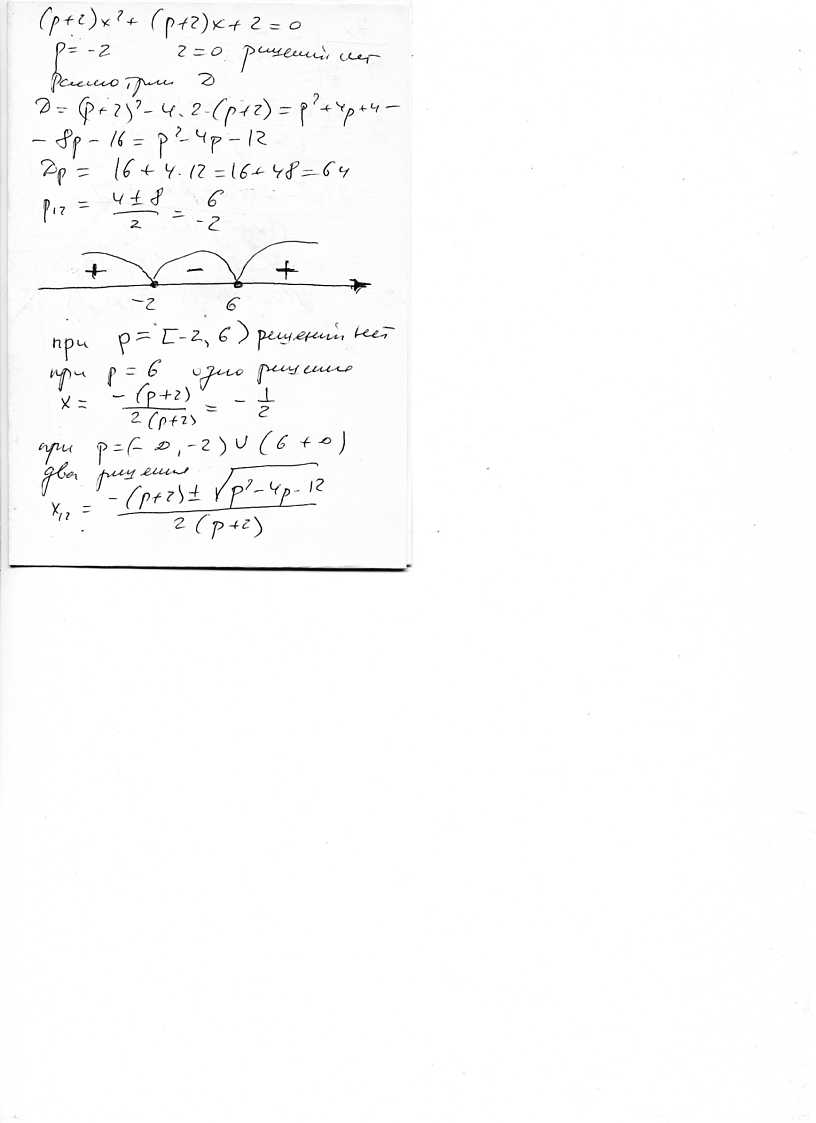 (p+2)x²+ (p+2)x+2=0
p= -2 2=0 решений нет
Рассмотрим D
D=(p+2)²-4·2·(p+2)=p²+4p+4-
-8p-16=p²-4p-12
Dp= 16+4·12=16+48=64
p₁₂ = (4±8)/2 = 6 -2
+ - +
-2 6
при p=[-2, 6) решений нет
при p=6 одно решение
x= -(p+2)/2(p+2) = -1/2
при p=(-∞,-2)∪(6 +∞)
два решения
x₁₂ = (-(p+2)±√(p²-4p-12))/2(p+2)